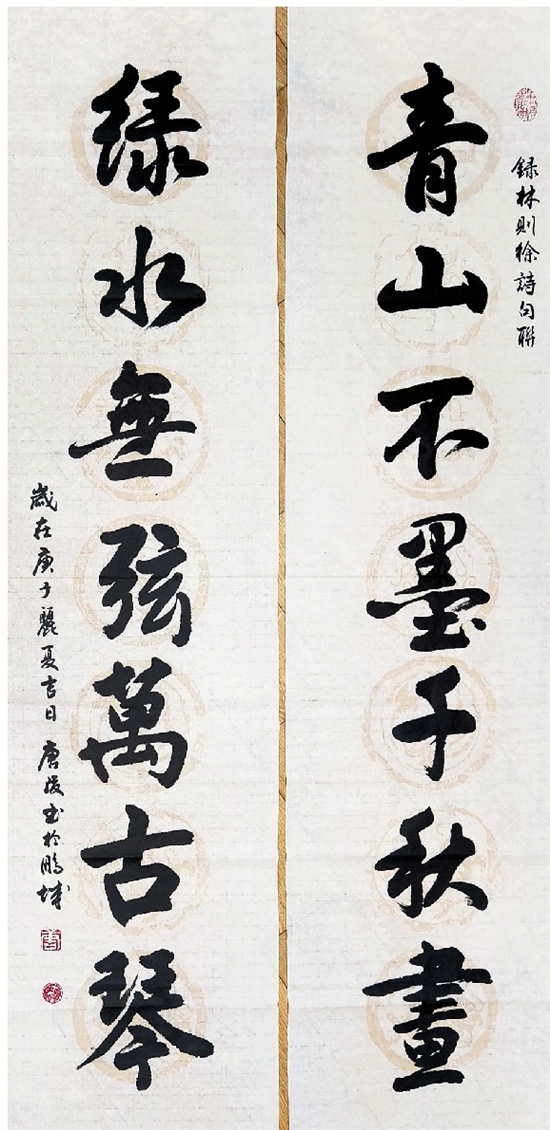 録林則徐詩句聯
青山不墨千秋畫
緑水無弦萬古琴
歲在庚子麗夏吉日 唐俊書於鵬城